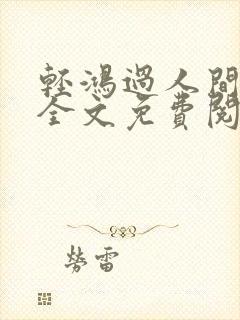 輕鴻過人間
全文免費閱
勞雷